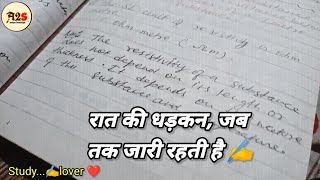 A2S
ohm metre (Ωm)
The resistivity of a substance
does not depend on its length or
thickness. It depends on
of the substance and
रात की धड़कन, जब
तक जारी रहती है ✍️
Study...✍️lover ❤️